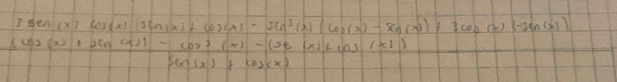 3 sen²(x) cos(x) (sen(x) + cos(x) - sen³(x) (cos(x) - sen(x)) + 3 cos²(x) (-sen(x))
(cos(x) + sen(x)) - cos³(x) - (se (x) + cos (x))
sen(x) + cos(x)